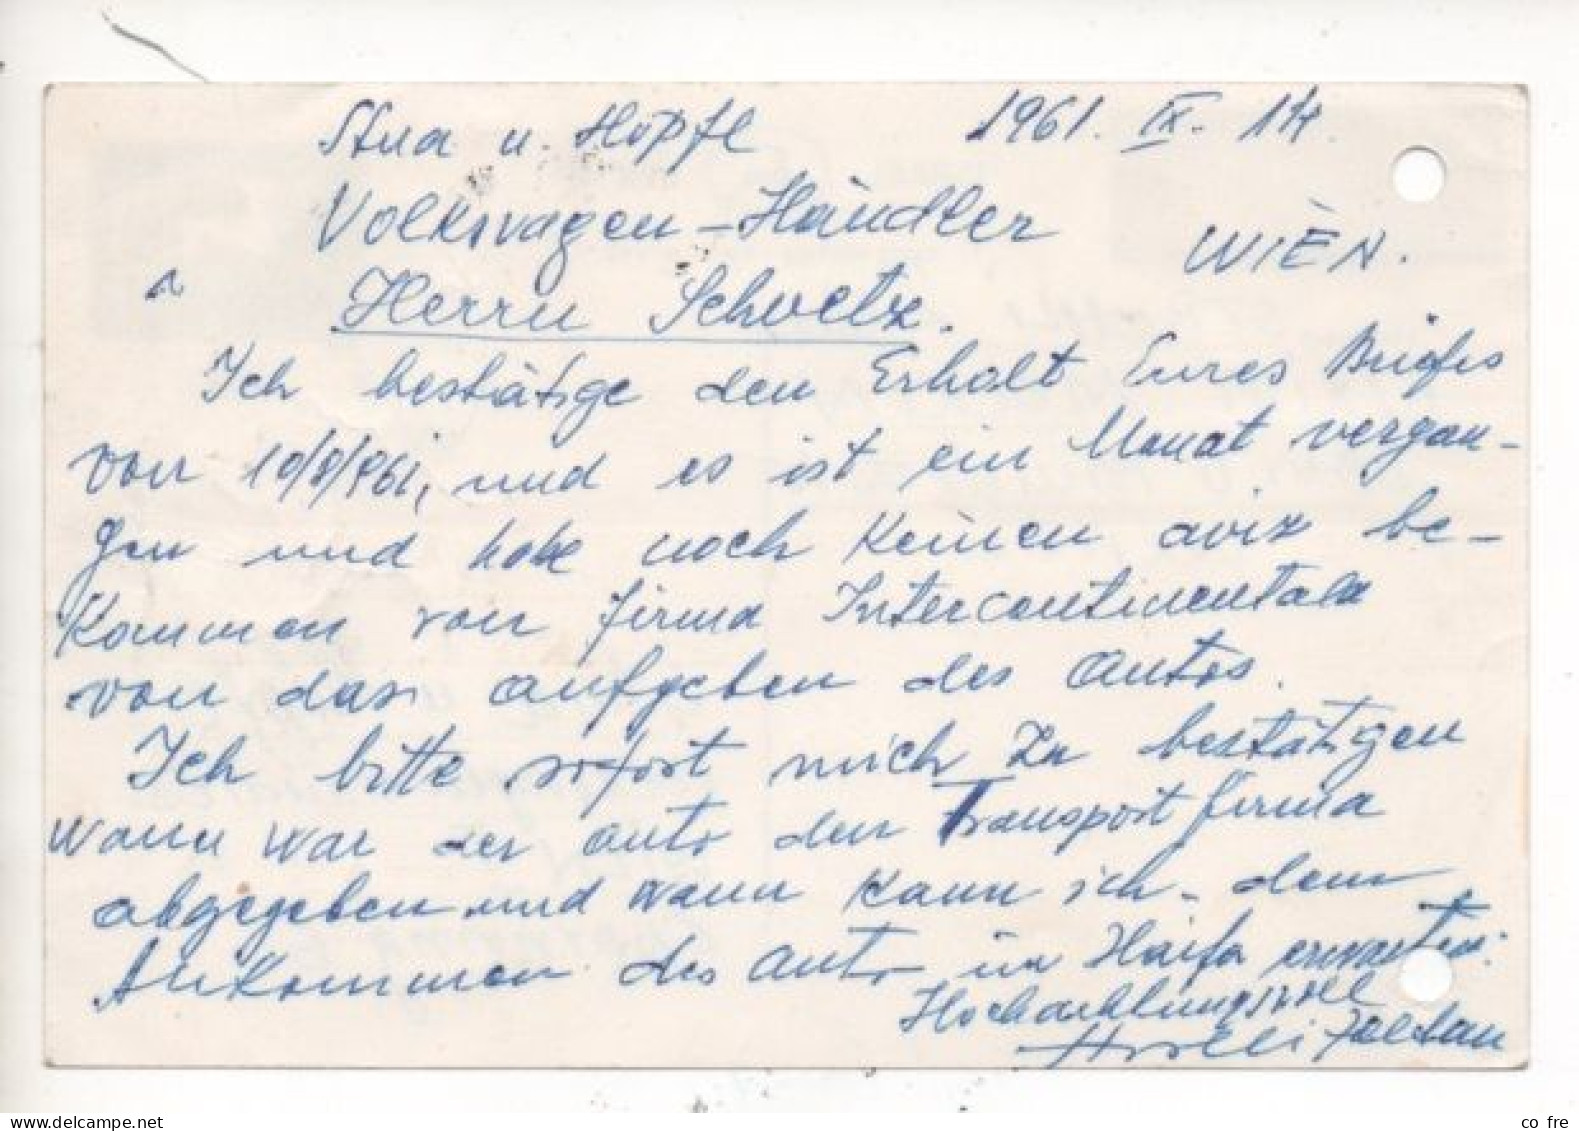 Stua u. Höpfl 1961. IX. 14.
Volkswagen-Händler
WIÈN.
Herrn Schwetz.
Ich bestätige den Erhalt Eures Briefes
von 10/8/961, und es ist ein Monat vergan-
gen und habe noch keinen aviz be-
kommen von firma Intercontinentale
von das aufgeben des autos.
Ich bitte sofort mich zu bestätigen
wann war der auto den Transport firma
abgegeben und wann kann ich dem
Ankommen des auto in Haifa erwarten.
Hochachtungsvoll
Zoltan
www.delcampe.net
co fre